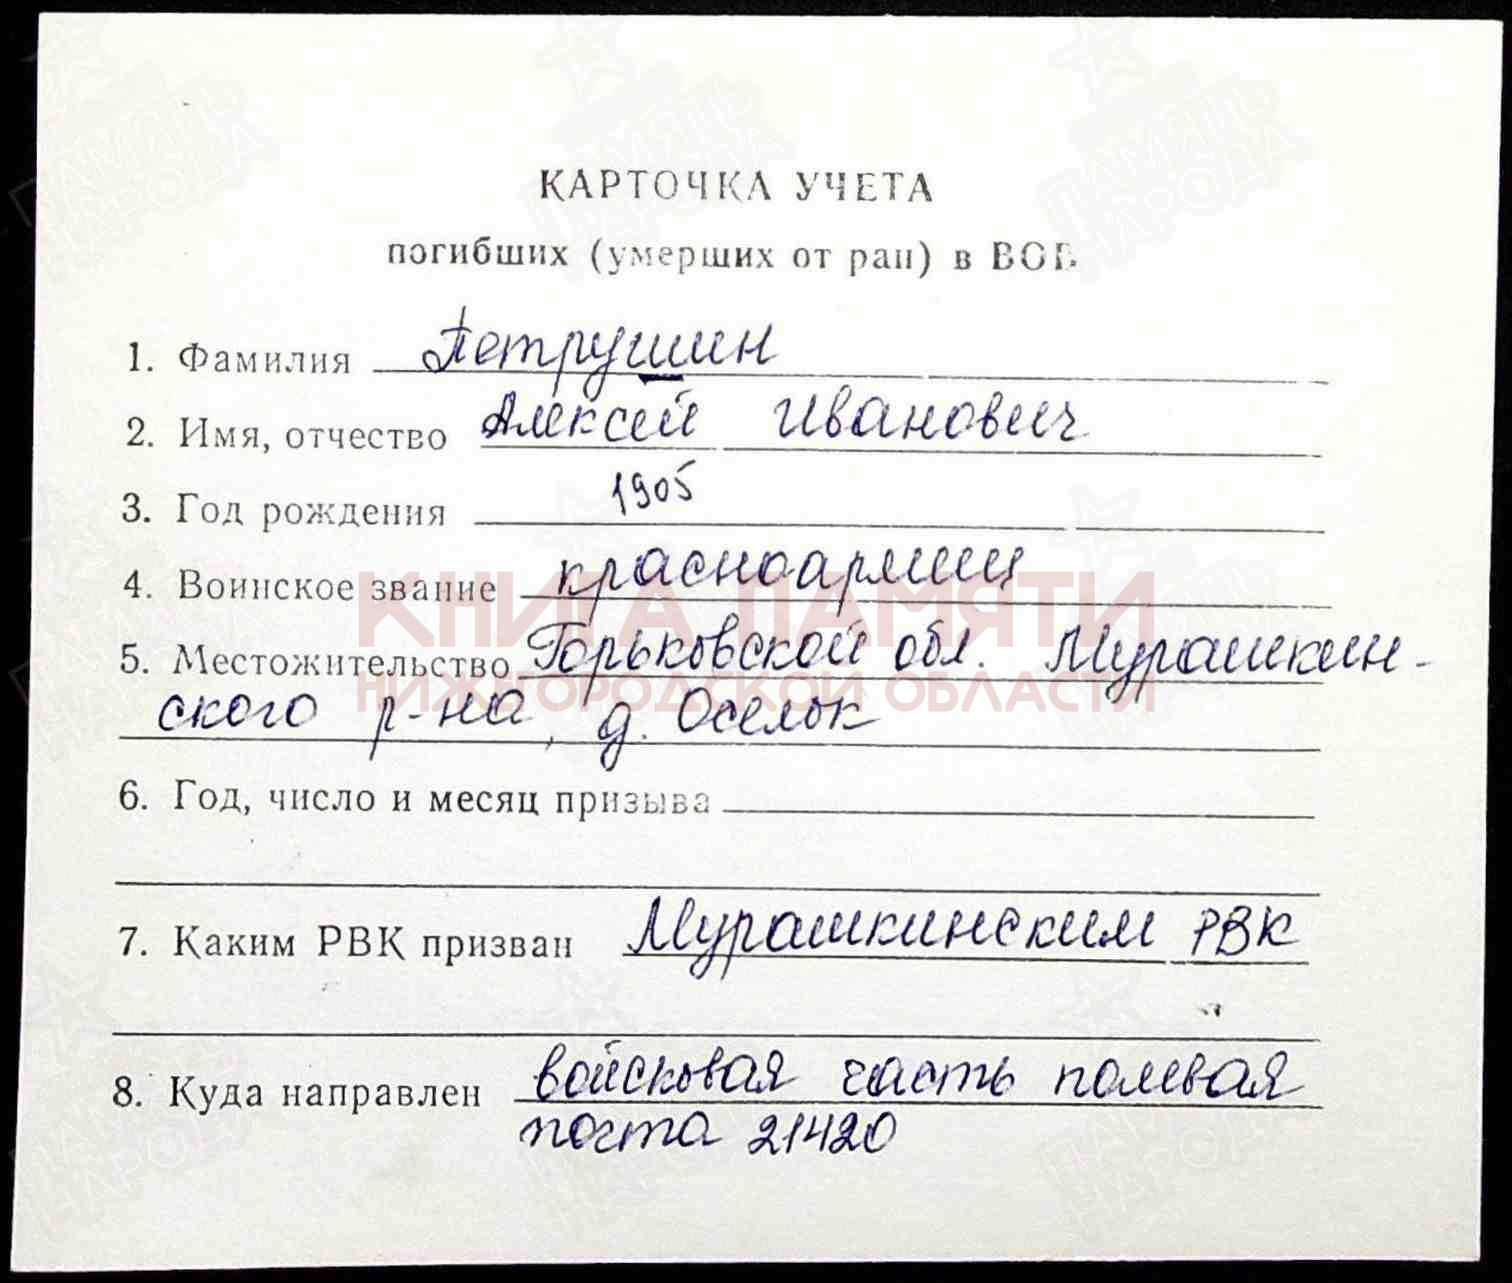 КАРТОЧКА УЧЕТА
погибших (умерших от ран) в ВОВ
1. Фамилия Петрушин
2. Имя, отчество Алексей Иванович
3. Год рождения 1905
4. Воинское звание красноармеец
КНИГА ПАМЯТИ
5. Местожительство Горьковской обл. Мурашкин-
НИЖЕГОРОДСКОЙ ОБЛАСТИ
ского р-на, д. Оселок
6. Год, число и месяц призыва
7. Каким РВК призван Мурашкинским РВК
8. Куда направлен войсковая часть полевая
почта 21420
ПАМЯТЬ НАРОДА